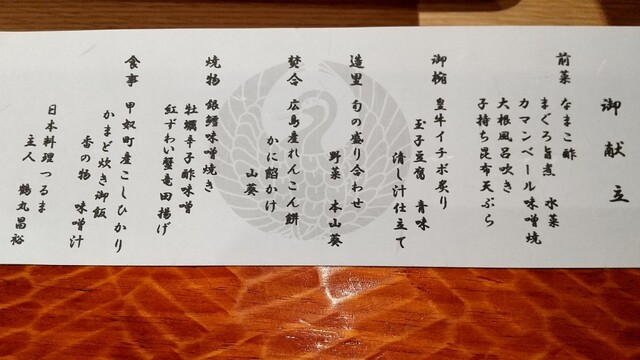 御献立
前菜 なまこ酢
まぐろ旨煮 水菜
カマンベール味噌焼
大根風呂吹き
子持ち昆布天ぷら
御椀 皇牛イチボ炙り
玉子豆腐 青味
清し汁仕立て
造里 旬の盛り合わせ
野菜 本山葵
焚合 広島産れんこん餅
かに餡かけ
山葵
焼物 銀鱈味噌焼き
牡蠣辛子酢味噌
紅ずわい蟹竜田揚げ
食事 甲奴町産こしひかり
かまど炊き御飯
香の物 味噌汁
日本料理つるま
主人 鶴丸昌裕